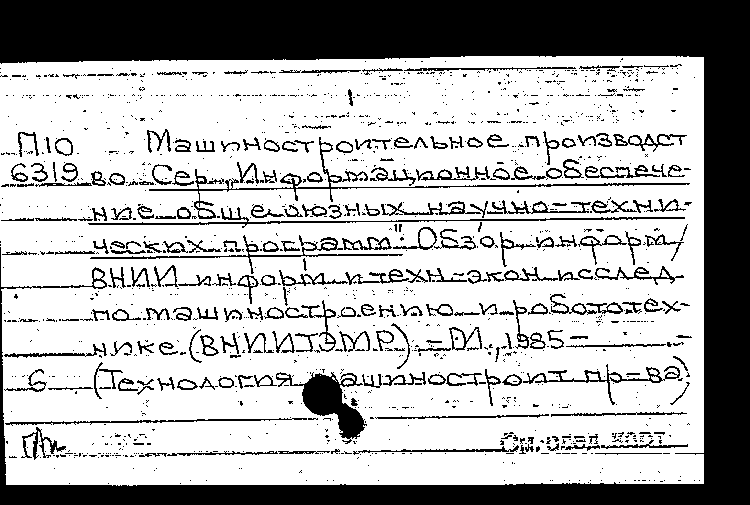 П10 Машиностроительное производст
6319 во. Сер. „Информационное обеспече-
ние общесоюзных научно-техни-
ческих программ": Обзор. информ/
ВНИИ информ и техн-экон исслед
по машиностроению и робототех-
нике (ВНИИТЭМР). - М., 1985 -
6 (Технология машиностроит пр-ва)
См. след. карт